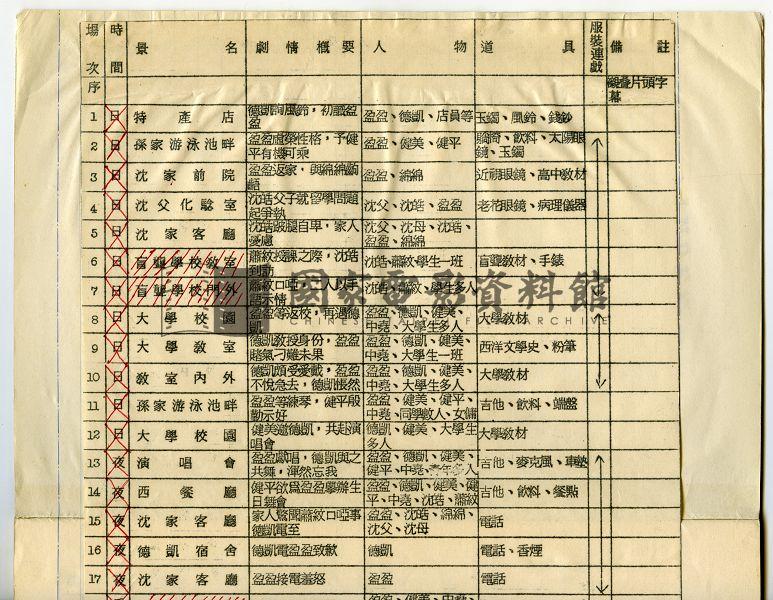 場次序 時間 景名 劇情概要 人物 道具 服裝連戲 備註
襯疊片頭字幕
1 日 特產店 德凱詢風鈴，初識盈盈 盈盈、德凱、店員等 玉鐲、風鈴、錢鈔
2 日 孫家游泳池畔 盈盈虛榮性格，予健平有機可乘 盈盈、健美、健平 騎椅、飲料、太陽眼鏡、玉鐲
3 日 沈家前院 盈盈返家，與綿綿齟齬 盈盈、綿綿 近視眼鏡、高中教材
4 日 沈父化驗室 沈皓父子就留學問題起爭執 沈父、沈皓、盈盈 老花眼鏡、病理儀器
5 日 沈家客廳 沈皓跛腿自卑，家人憂慮 沈父、沈母、沈皓、盈盈、綿綿
6 日 盲聾學校教室 蕭紋授課之際，沈皓到訪 沈皓、蕭紋、學生一班 盲聾教材、手錶
7 日 盲聾學校門外 蕭紋口啞，二人以手語示情 沈皓、蕭紋、學生多人
8 日 大學校園 盈盈等返校，再遇德凱 盈盈、德凱、健美、中堯、大學生多人 大學教材
9 日 大學教室 德凱教授身份，盈盈賭氣刁難未果 盈盈、德凱、健美、中堯、大學生一班 西洋文學史、粉筆
10 日 教室內外 德凱頗受愛戴，盈盈不悅急去，德凱悵然 盈盈、德凱、健美、中堯、大學生多人 大學教材
11 日 孫家游泳池畔 盈盈等練琴，健平殷勤示好 盈盈、健美、健平、中堯、同學數人、女傭 吉他、飲料、端盤
12 日 大學校園 健美邀德凱，共赴演唱會 德凱、健美、大學生多人 大學教材
13 夜 演唱會 盈盈獻唱，德凱與之共舞，渾然忘我 盈盈、德凱、健美、健平、中堯、青年多人 吉他、麥克風、車墊
14 夜 西餐廳 健平欲爲盈盈舉辦生日舞會 盈盈、德凱、健美、健平、中堯、沈皓、蕭紋 吉他、飲料、餐點
15 夜 沈家客廳 家人驚聞蕭紋口啞事 德凱電至 盈盈、沈皓、綿綿、沈父、沈母 電話
16 夜 德凱宿舍 德凱電盈盈致歉 德凱 電話、香煙
17 夜 沈家客廳 盈盈接電羞怒 盈盈 電話
國家電影資料館
CHINESE FILM ARCHIVE